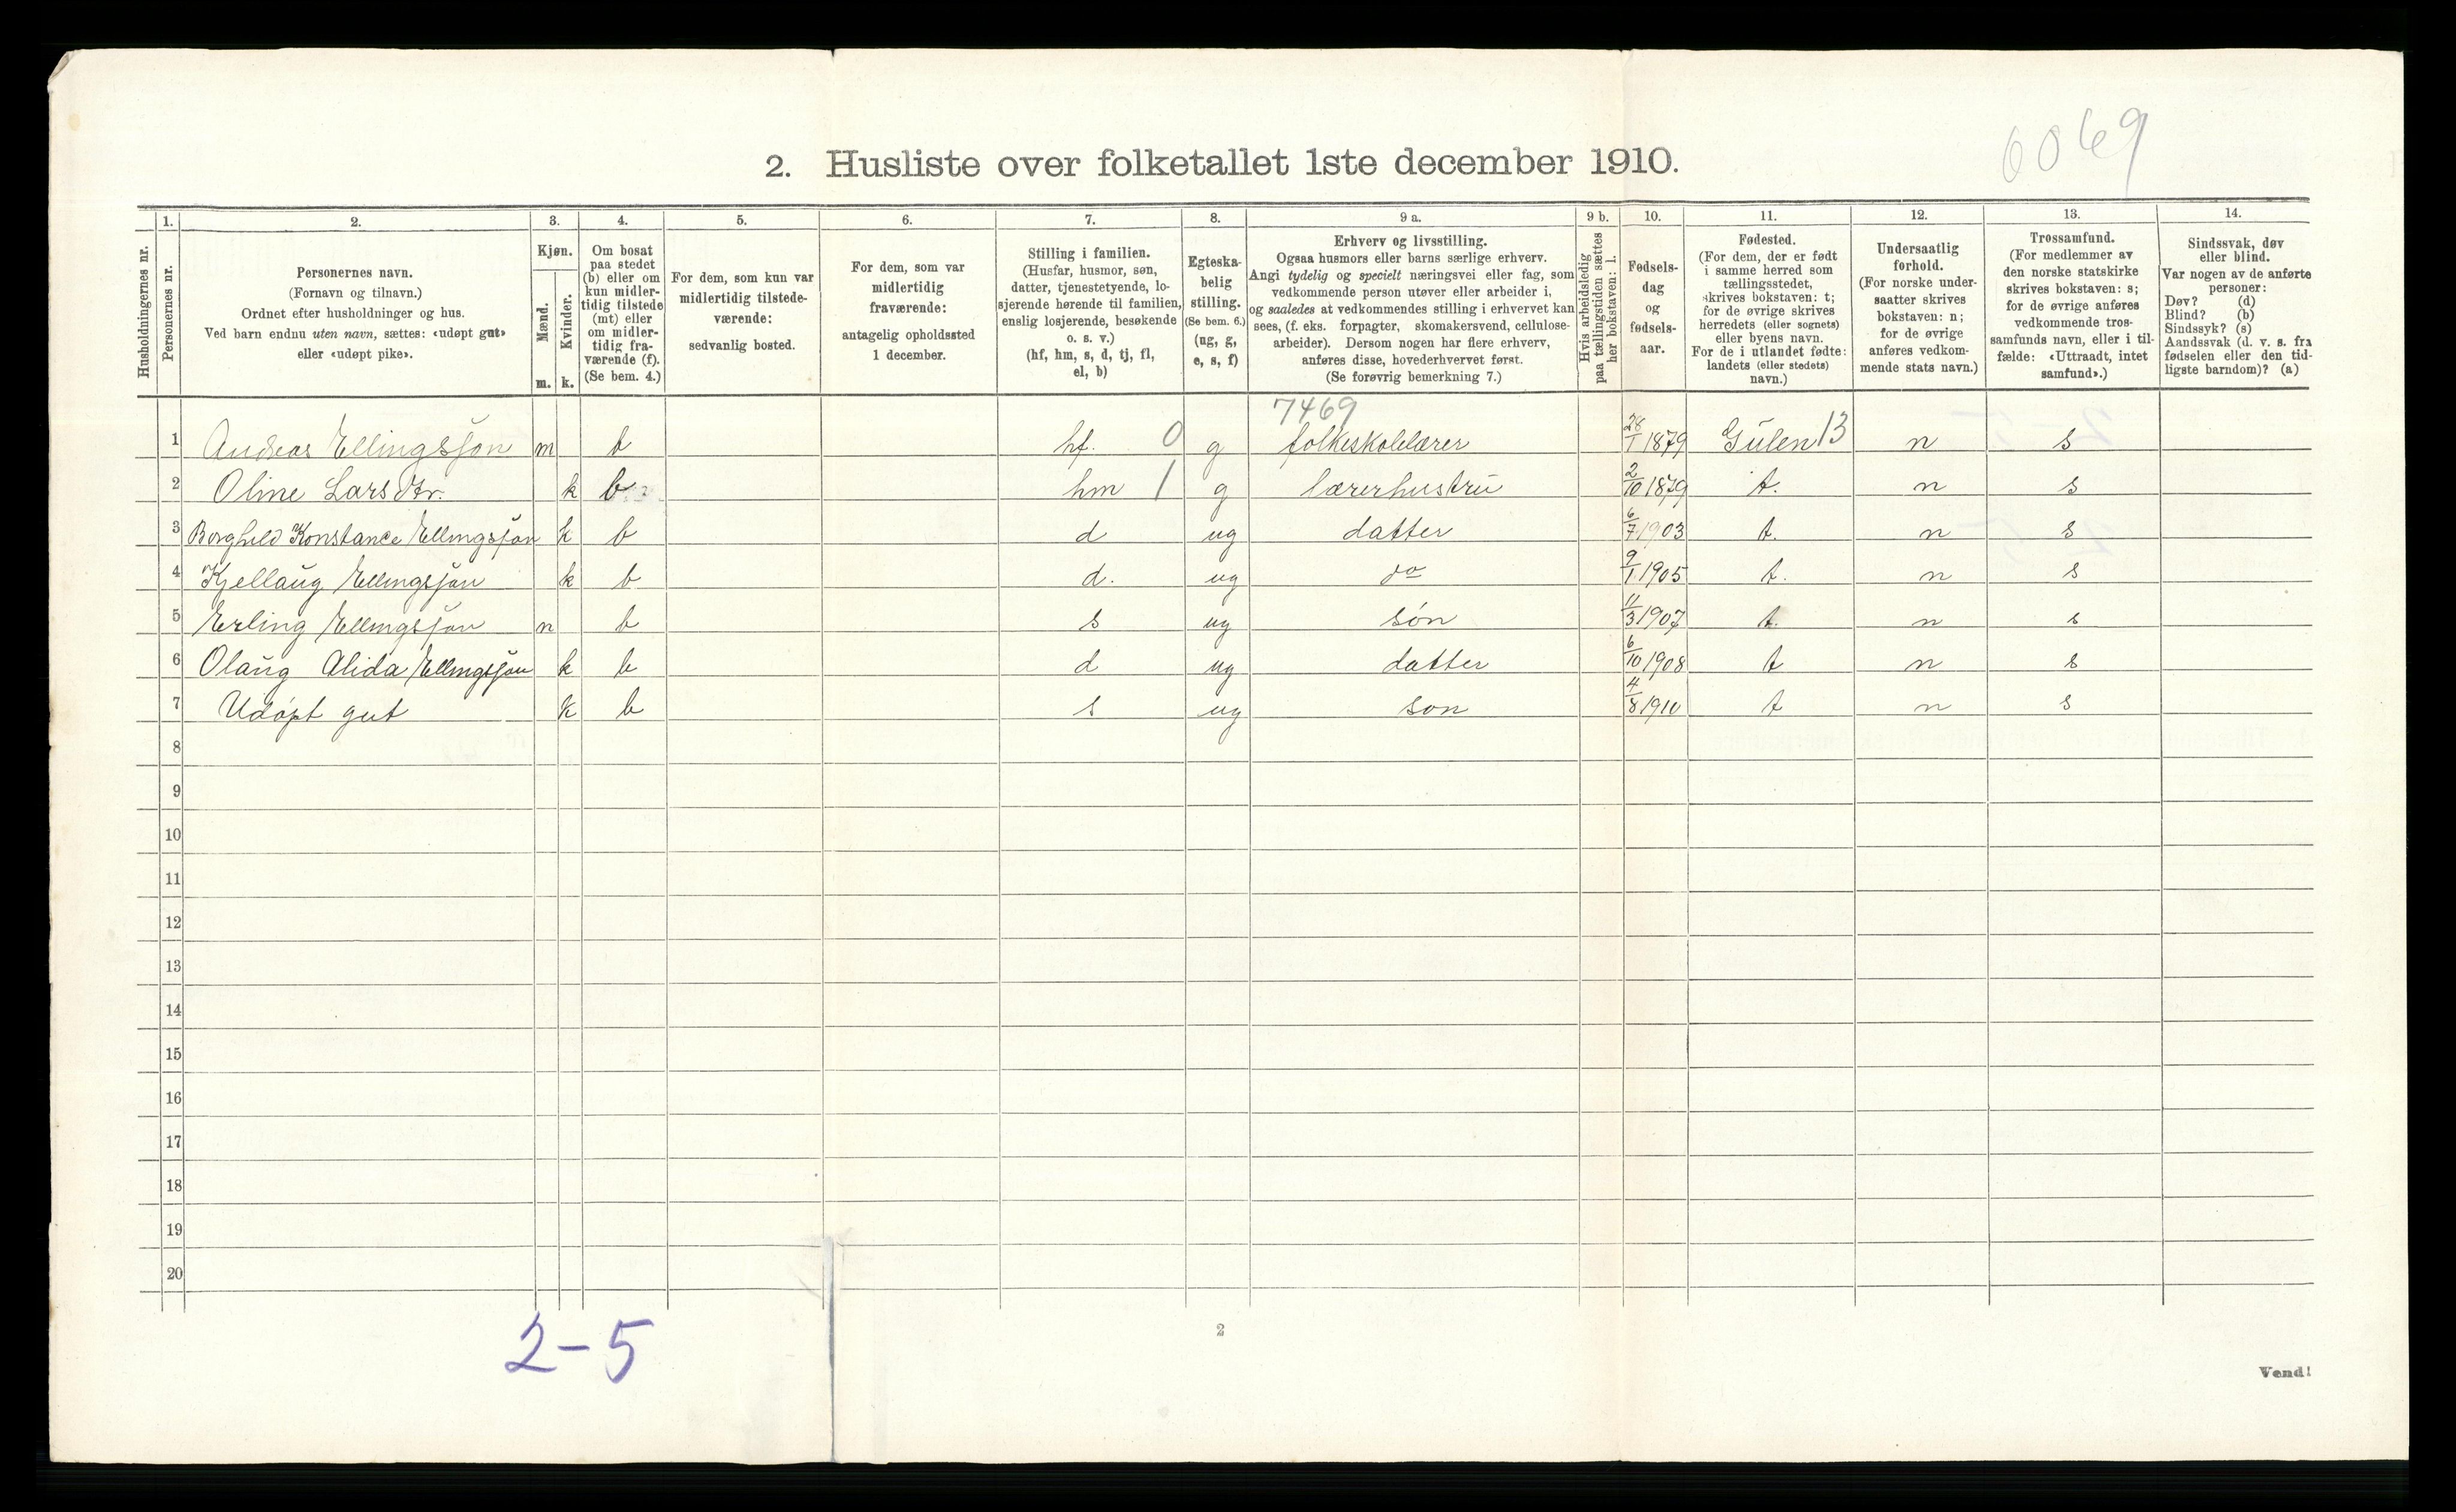 6069
2. Husliste over folketallet 1ste december 1910.
Husholdningernes nr.
1.
Personernes nr.
2.
Personernes navn.
(Fornavn og tilnavn.)
Ordnet efter husholdninger og hus.
Ved barn endnu uten navn, sættes: «udøpt gut»
eller «udøpt pike».
3.
Kjøn.
Mænd.
Kvinder.
m. k.
4.
Om bosat
paa stedet
(b) eller om
kun midler-
tidig tilstede
(mt) eller
om midler-
tidig fra-
værende (f).
(Se bem. 4.)
5.
For dem, som kun var
midlertidig tilstede-
værende:
sedvanlig bosted.
6.
For dem, som var
midlertidig
fraværende:
antagelig opholdssted
1 december.
7.
Stilling i familien.
(Husfar, husmor, søn,
datter, tjenestetyende, lo-
sjerende hørende til familien,
enslig losjerende, besøkende
o. s. v.)
(hf, hm, s, d, tj, fl,
el, b)
8.
Egteska-
belig
stilling.
(Se bem. 6.)
(ug, g,
e, s, f)
9 a.
Erhverv og livsstilling.
Ogsaa husmors eller barns særlige erhverv.
Angi tydelig og specielt næringsvei eller fag, som
vedkommende person utøver eller arbeider i,
og saaledes at vedkommendes stilling i erhvervet kan
sees, (f. eks. forpagter, skomakersvend, cellulose-
arbeider). Dersom nogen har flere erhverv,
anføres disse, hovederhvervet først.
(Se forøvrig bemerkning 7.)
9 b.
Hvis arbeidsledig
paa tællingstiden sættes
her bokstaven: l.
10.
Fødsels-
dag
og
fødsels-
aar.
11.
Fødested.
(For dem, der er født
i samme herred som
tællingsstedet,
skrives bokstaven: t;
for de øvrige skrives
herredets (eller sognets)
eller byens navn.
For de i utlandet fødte:
landets (eller stedets)
navn.)
12.
Undersaatlig
forhold.
(For norske under-
saatter skrives
bokstaven: n;
for de øvrige
anføres vedkom-
mende stats navn.)
13.
Trossamfund.
(For medlemmer av
den norske statskirke
skrives bokstaven: s;
for de øvrige anføres
vedkommende tros-
samfunds navn, eller i til-
fælde: «Uttraadt, intet
samfund».)
14.
Sindssvak, døv
eller blind.
Var nogen av de anførte
personer:
Døv? (d)
Blind? (b)
Sindssyk? (s)
Aandssvak (d. v. s. fra
fødselen eller den tid-
ligste barndom)? (a)
7469
1 Andreas Ellingsjon m b hf. 0 g folkeskolelærer 28/1 1879 Gulen 13 n s
2 Oline Larsdtr. k b hm 1 g lærerhustru 2/10 1879 t. n s
3 Borghild Konstance Ellingsjon k b d ug datter 6/7 1903 t. n s
4 Kjellaug Ellingsjon k b d. ug do 9/1 1905 t. n s
5 Erling Ellingsjon m b s ug søn 11/3 1907 t. n s
6 Olaug Alida Ellingsjon k b d ug datter 6/10 1908 t n s
7 Udøpt gut k b s ug son 4/8 1910 t n s
8
9
10
11
12
13
14
15
16
17
18
19
20
2-5
2
Vend!